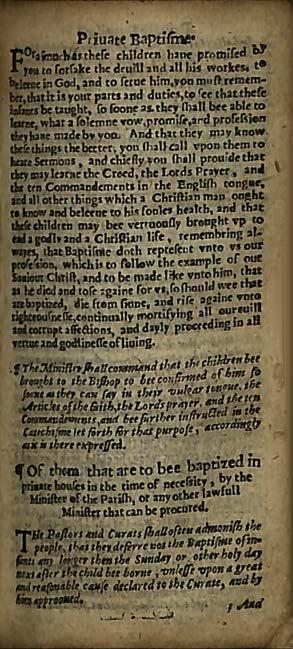 Private Baptisme.
FOrasmuch as these children haue promised by
you to forsake the deuill and all his workes, to
beleeue in God, and to serue him, you must remem-
ber, that it is your parts and duties, to see that these
infants be taught, so soone as they shall bee able to
learne, what a solemne vow, promise, and profession
they haue made by you. And that they may know
these things the better, you shall call vpon them to
heare Sermons, and chiefly you shall prouide that
they may learne the Creed, the Lords Prayer, and
the ten Commandements in the English tongue,
and all other things which a Christian man ought
to know and beleeue to his soules health, and that
these children may bee vertuously brought vp to
lead a godly and a Christian life, remembring al-
wayes, that Baptisme doth represent vnto vs our
profession, which is to follow the example of our
Sauiour Christ, and to be made like vnto him, that
as he died and rose againe for vs, so should wee that
are baptized, die from sinne, and rise againe vnto
righteousnesse, continually mortifying all our euill
and corrupt affections, and dayly proceeding in all
vertue and godlinesse of liuing.
¶ The Minister shall command that the children bee
brought to the Bishop to bee confirmed of him so
soone as they can say in their vulgar tongue, the
Articles of the faith, the Lords prayer, and the ten
Commandements, and bee further instructed in the
Catechisme set forth for that purpose, accordingly
as it is there expressed.
¶ Of them that are to bee baptized in
private houses in the time of necessity, by the
Minister of the Parish, or any other lawfull
Minister that can be procured.
THe Pastors and Curats shall often admonish the
people, that they deferre not the Baptisme of in-
fants any longer then the Sunday or other holy day
next after the child bee borne, vnlesse vpon a great
and reasonable cause declared to the Curate, and by
him approoued.
And